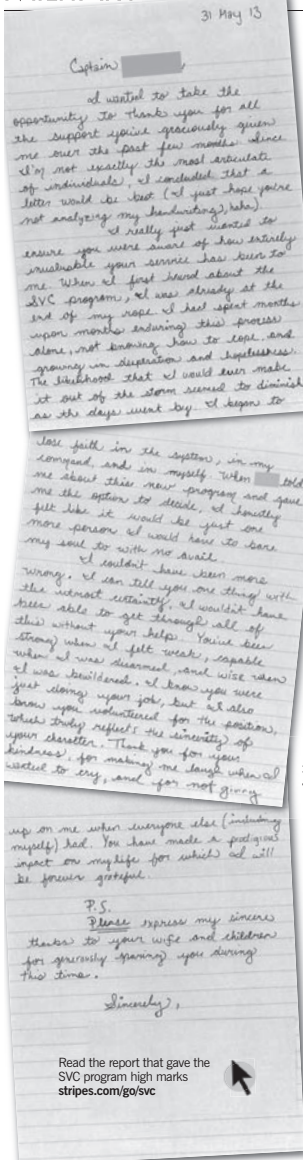 31 May 13
Captain
I wanted to take the
opportunity to thank you for all
the support you've graciously given
me over the past few months. Since
I'm not exactly the most articulate
of individuals, I concluded that a
letter would be best (I just hope you're
not analyzing my handwriting, haha).
I really just wanted to
ensure you were aware of how entirely
invaluable your service has been to
me. When I first heard about the
SVC program, I was already at the
end of my rope. I had spent months
upon months enduring this process
alone, not knowing how to cope, and
growing in desperation and hopelessness.
The likelihood that I would ever make
it out of the storm seemed to diminish
as the days went by. I began to
lose faith in the system, in my
command, and in myself. When told
me about this new program and gave
me the option to decide, I honestly
felt like it would be just one
more person I would have to bare
my soul to with no avail.
I couldn't have been more
wrong. I can tell you one thing with
the utmost certainty, I wouldn't have
been able to get through all of
this without your help. You've been
strong when I felt weak, capable
when I was disarmed, and wise when
I was bewildered. I know you were
just doing your job, but I also
know you volunteered for the position,
which truly reflects the sincerity of
your character. Thank you for your
kindness, for making me laugh when I
wanted to cry, and for not giving
up on me when everyone else (including
myself) had. You have made a prodigious
impact on my life for which I will
be forever grateful.
P.S.
Please express my sincere
thanks to your wife and children
for generously sparing you during
this time.
Sincerely,
Read the report that gave the
SVC program high marks
stripes.com/go/svc